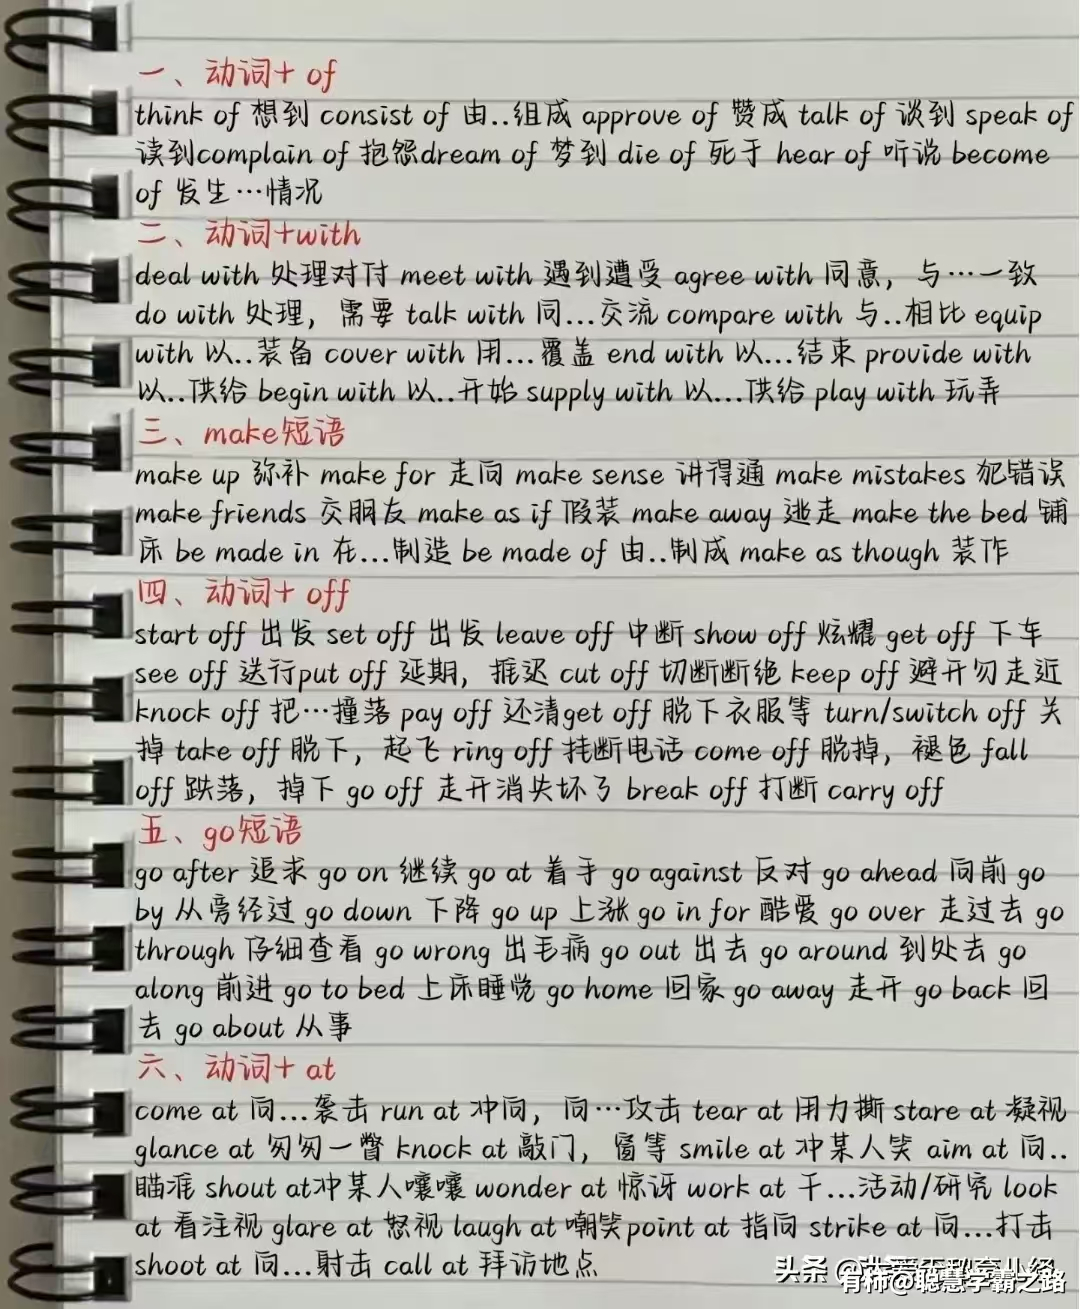 一、动词+ of
think of 想到 consist of 由..组成 approve of 赞成 talk of 谈到 speak of
读到complain of 抱怨dream of 梦到 die of 死于 hear of 听说 become
of 发生…情况
二、动词+with
deal with 处理对付 meet with 遇到遭受 agree with 同意，与…一致
do with 处理，需要 talk with 同...交流 compare with 与..相比 equip
with 以..装备 cover with 用...覆盖 end with 以...结束 provide with
以..供给 begin with 以..开始 supply with 以...供给 play with 玩弄
三、make短语
make up 弥补 make for 走向 make sense 讲得通 make mistakes 犯错误
make friends 交朋友 make as if 假装 make away 逃走 make the bed 铺
床 be made in 在...制造 be made of 由..制成 make as though 装作
四、动词+ off
start off 出发 set off 出发 leave off 中断 show off 炫耀 get off 下车
see off 送行put off 延期，推迟 cut off 切断断绝 keep off 避开勿走近
knock off 把…撞落 pay off 还清get off 脱下衣服等 turn/switch off 关
掉 take off 脱下，起飞 ring off 挂断电话 come off 脱掉，褪色 fall
off 跌落，掉下 go off 走开消失坏了 break off 打断 carry off
五、go短语
go after 追求 go on 继续 go at 着手 go against 反对 go ahead 向前 go
by 从旁经过 go down 下降 go up 上涨 go in for 酷爱 go over 走过去 go
through 仔细查看 go wrong 出毛病 go out 出去 go around 到处去 go
along 前进 go to bed 上床睡觉 go home 回家 go away 走开 go back 回
去 go about 从事
六、动词+ at
come at 向...袭击 run at 冲向，向…攻击 tear at 用力撕 stare at 凝视
glance at 匆匆一瞥 knock at 敲门，窗等 smile at 冲某人笑 aim at 向..
瞄准 shout at冲某人嚷嚷 wonder at 惊讶 work at 干...活动/研究 look
at 看注视 glare at 怒视 laugh at 嘲笑point at 指向 strike at 向...打击
shoot at 向...射击 call at 拜访地点
头条
有柿@聪慧学霸之路